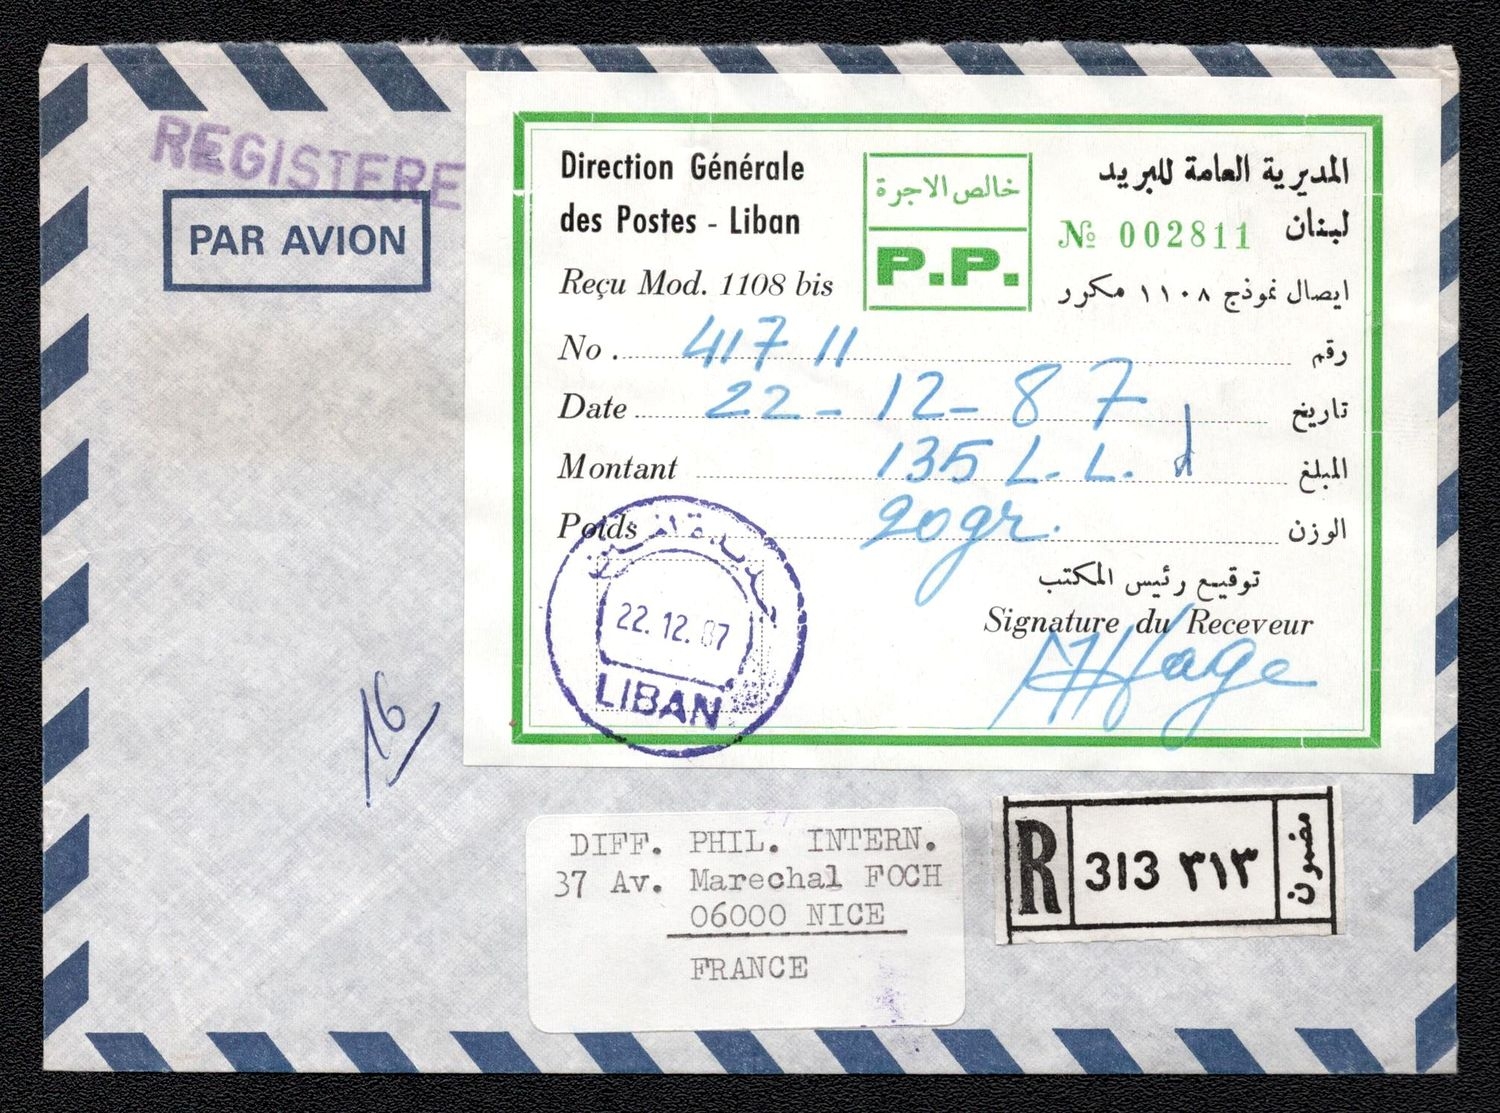 REGISTERE
PAR AVION
Direction Générale
des Postes - Liban
Reçu Mod. 1108 bis
خالص الاجرة
P.P.
المديرية العامة للبريد
لبنان
№ 002811
ايصال نموذج ١١٠٨ مكرر
No. 417 11 رقم
Date 22 - 12 - 87 تاريخ
Montant 135 L.L. المبلغ
Poids 20 gr. الوزن
توقيع رئيس المكتب
Signature du Receveur
22.12.87
LIBAN
16
DIFF. PHIL. INTERN.
37 Av. Marechal FOCH
06000 NICE
FRANCE
R 313 ٣١٣ مضمون